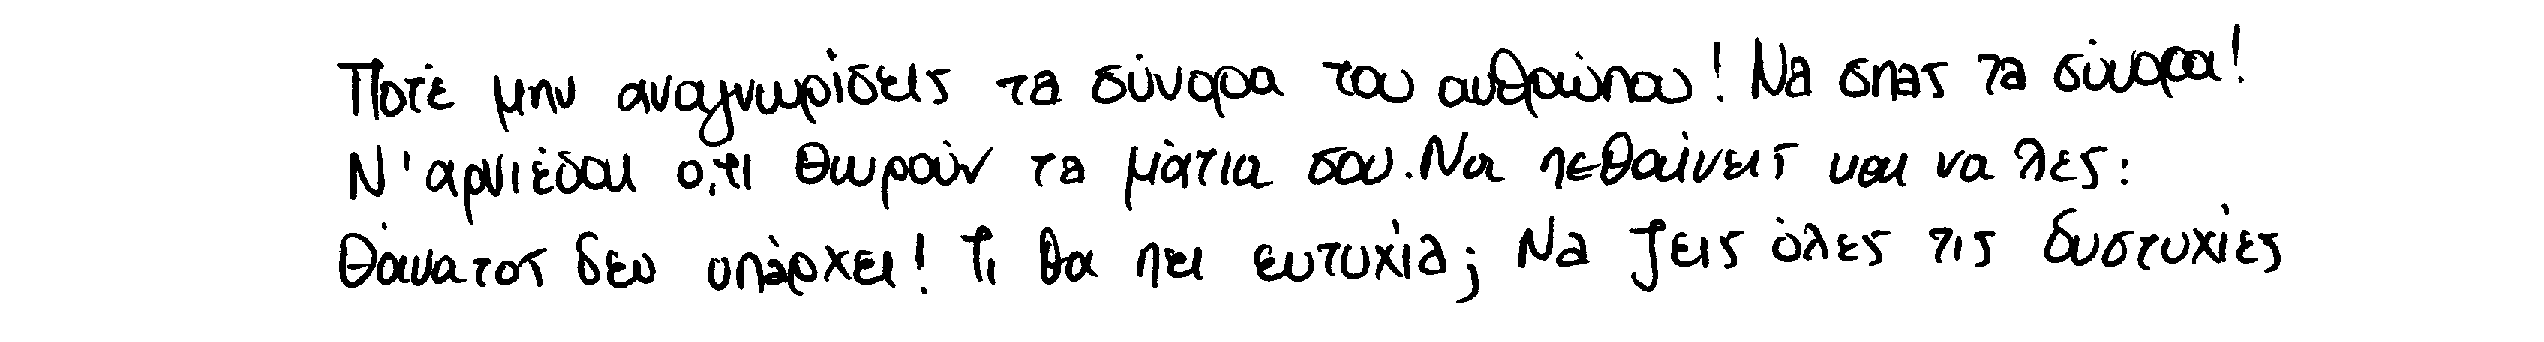 Ποτέ μην αναγνωρίσεις τα σύνορα του ανθρώπου! Να σπας τα σύνορα!
Ν' αρνιέσαι ό,τι θωρούν τα μάτια σου. Να πεθαίνεις και να λες:
Θάνατος δεν υπάρχει! Τι θα πει ευτυχία; Να ζεις όλες τις δυστυχίες